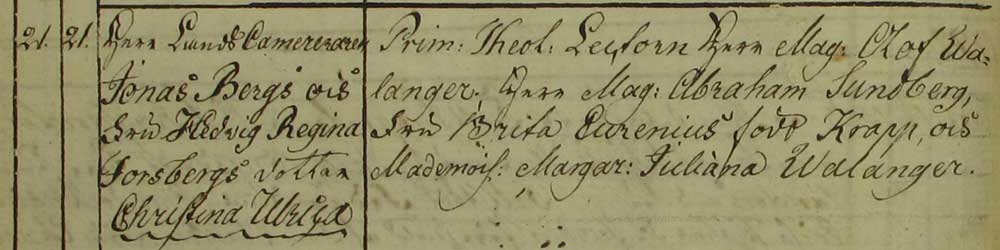 21. 21. Herr Lands Camereraren
Jonas Bergs ois
Fru Hedvig Regina
Forsbergs dotter
Christina Ulrica
Prim: Theol: Lectorn Herr Mag: Olof Wa-
langer, Herr Mag: Abraham Sundberg,
Fru Brita Eurenius född Krapp, ois
Mademois: Margar: Juliana Walanger.